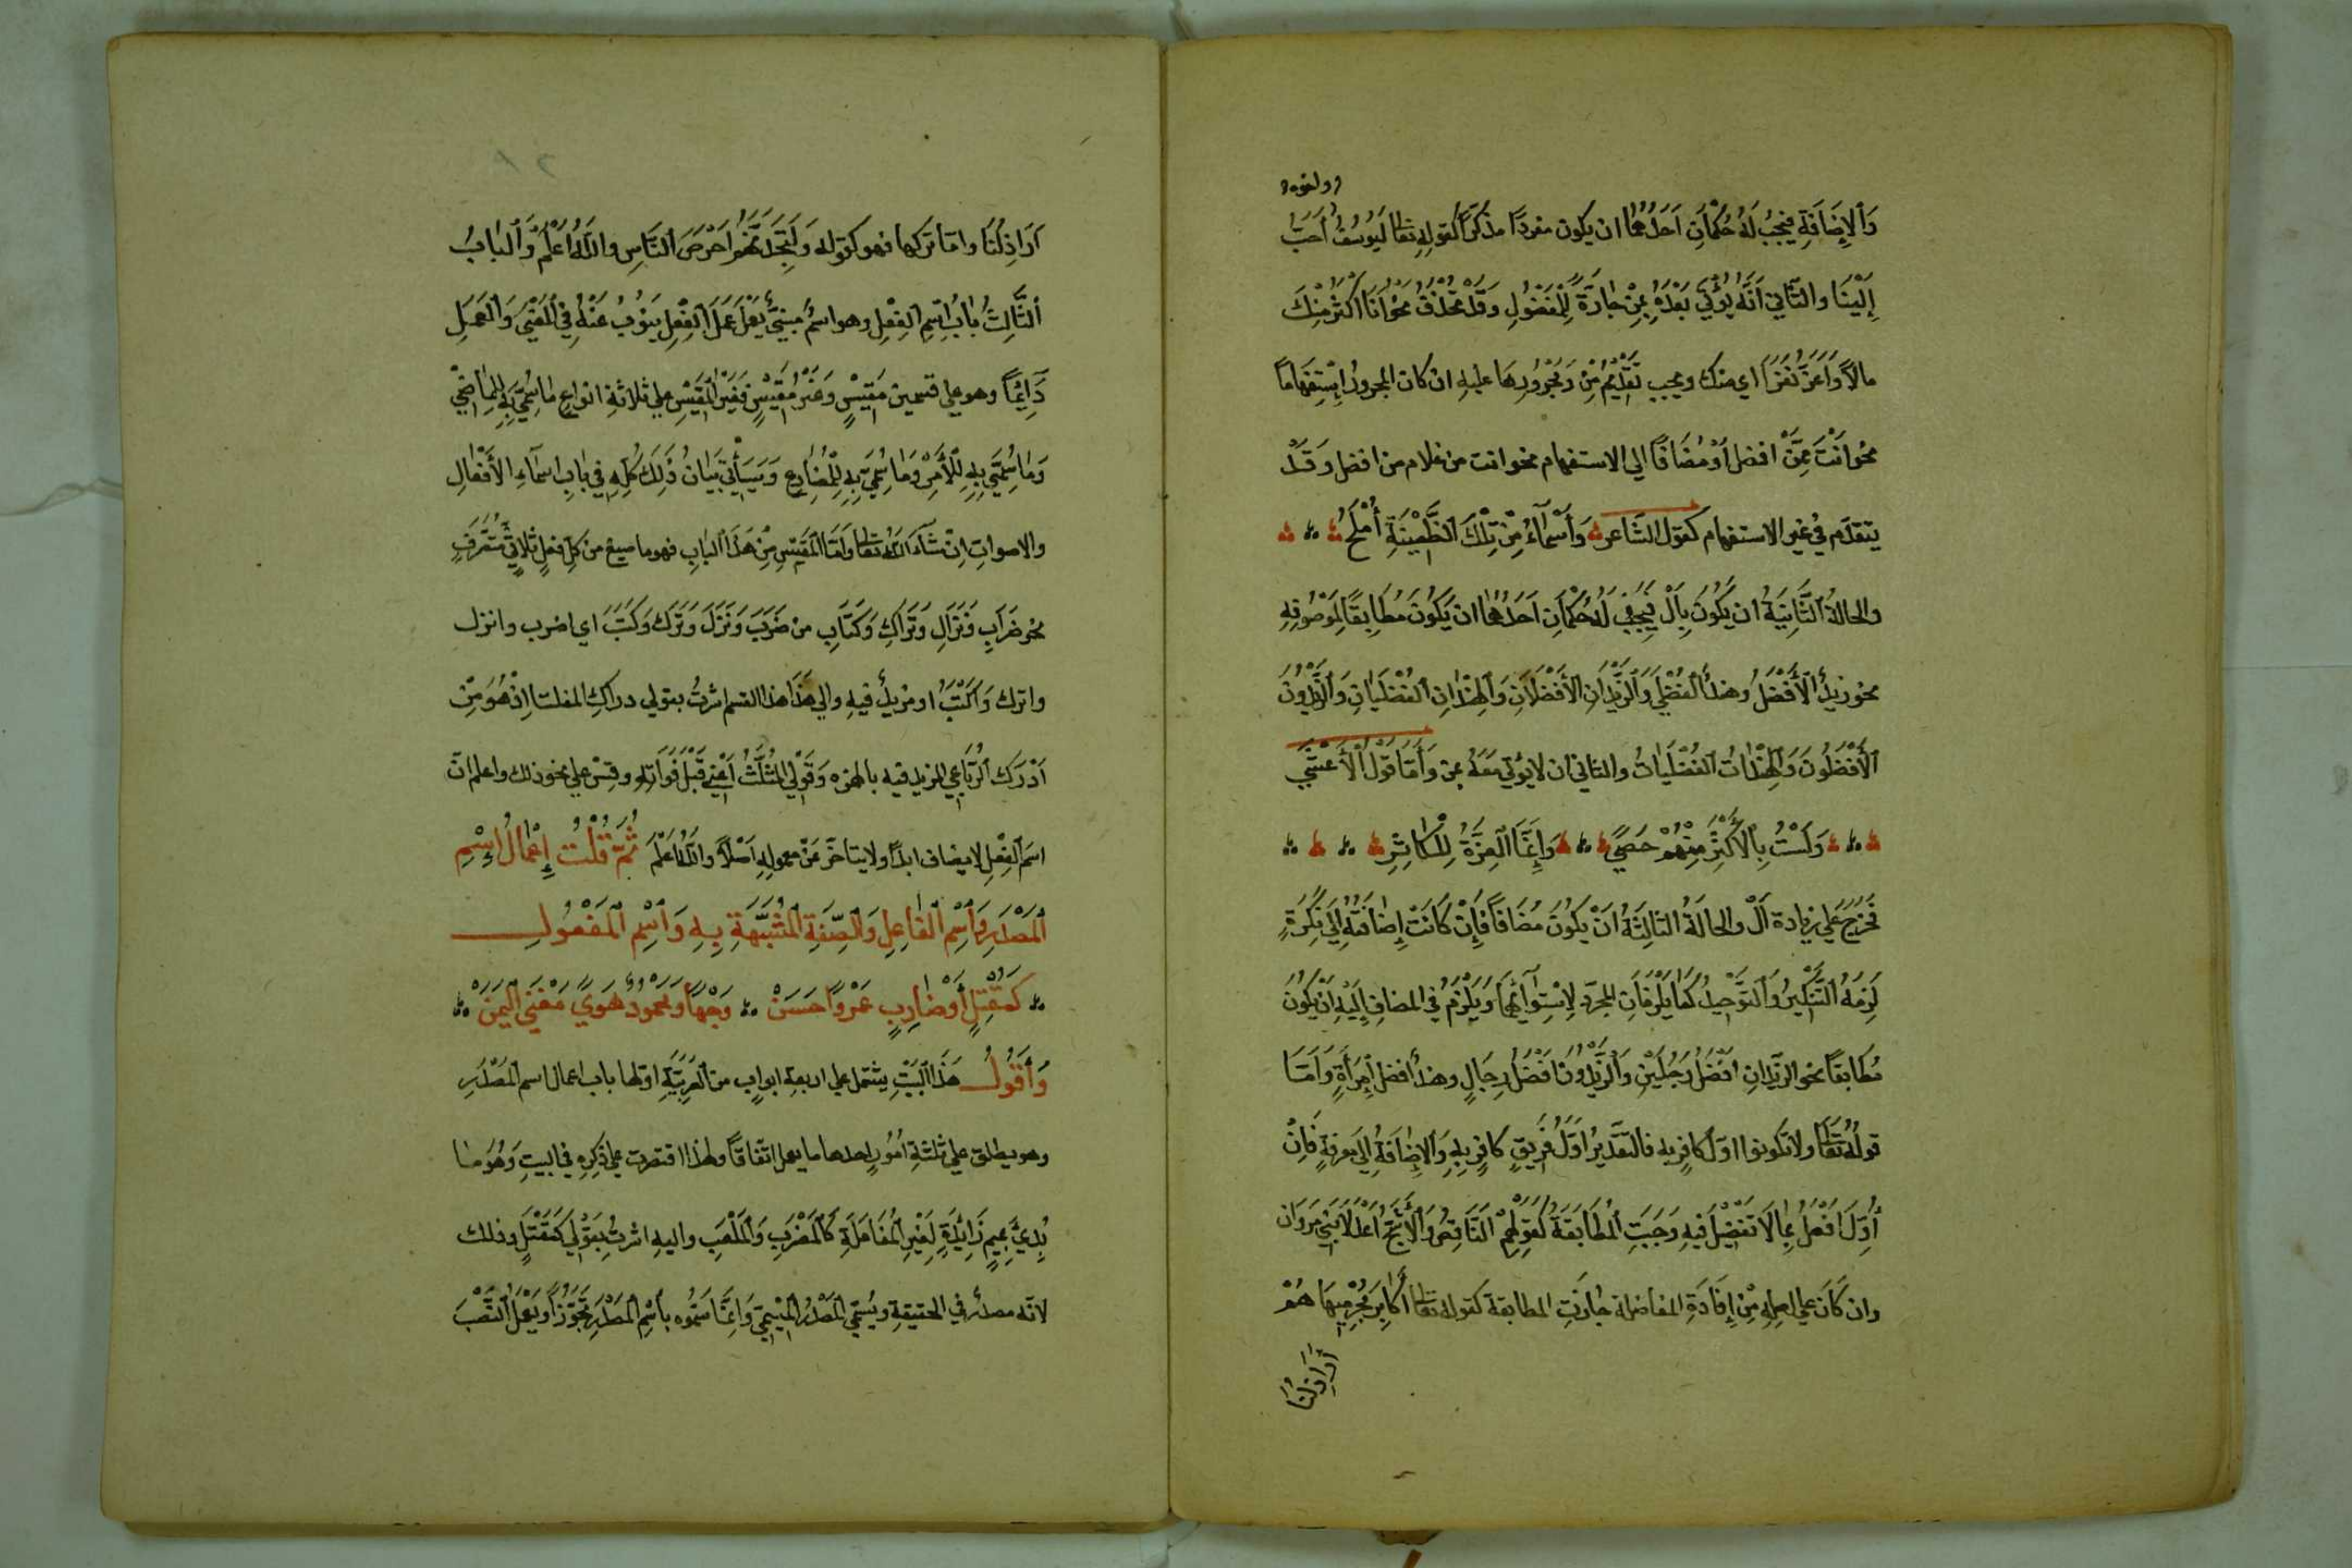 واخوه
وَالإِضَافَةِ فيَجِبُ لَهُ حُكْمَانِ اَحَدُهُمَا ان يكون مفردًا مذكرًا كقولِهِ تعالى لَيُوسُفُ أَحَبُّ
إِلَيْنَا والثاني اَنَّهُ يُؤْتَى بَعْدَهُ بِمِنْ جارَّةً لِلْمَفْضُولِ وَقَدْ تُحْذَفُ نحو أَنَا أَكْثَرُ مِنْكَ
مالاً وَأَعَزُّ نَفَرًا اي منك ويجب تَقْدِيْمُ مِنْ وَمَجْرُوْرِهَا عليهِ ان كان المجرورُ اِسْتِفْهَامًا
نحو اَنْتَ مِمَّنْ افضل اَوْ مُضَافًا الي الاستفهام نحو انت من غلام من افضل وَقَدْ
يتقدّم في غير الاستفهام كقول الشَّاعر وَأَسْمَاءُ مِنْ تِلْكَ الظَّعِيْنَةِ أَمْلَحُ
والحالةُ الثَّانِيَةُ ان يَكُوْنَ بِأَلْ فَيَجِبُ لَهُ حُكْمَانِ اَحَدُهُمَا ان يَكُوْنَ مُطَابِقًا لِمَوْصُوفِهِ
نحو زيدٌ الْأَفْضَلُ وهندٌ الْفُضْلَى وَالزَّيْدَانِ الأَفْضَلَانِ وَالهِنْدَانِ الفُضْلَيَانِ وَالزَّيْدُوْنَ
الأَفْضَلُوْنَ وَالهِنْدَاتُ الفُضْلَيَاتُ والثاني ان لا يؤتى مَعَهُ بمن وَأَمَّا قَوْلُ الْأَعْشَى
وَلَسْتُ بِالْأَكْثَرِ مِنْهُمْ حَصىً وَإِنَّمَا العِزَّةُ لِلْكَاثِرِ
فَخُرِّجَ عَلَى زيادة اَلْ والحالَةُ الثالِثَةُ اَنْ يَكُوْنَ مُضَافًا فَإِنْ كَانَتْ إِضَافَتُهُ إِلَى نَكِرَةٍ
لَزِمَهُ التَّذْكِيْرُ وَالتَّوْحِيْدُ كَمَا يَلْزَمَانِ المجرّد لِاِسْتِوَائِهِمَا وَيَلْزَمُ في المضافِ إِلَيْهِ اَنْ يَكُوْنَ
مُطَابِقًا نحو الزيدانِ اَفْضَلُ رَجُلَيْنِ وَالزَّيْدُوْنَ اَفْضَلُ رِجَالٍ وهندٌ افضل اِمْرَأَةٍ وَاَمَّا
قولُهُ تَعَالَى ولا تكونوا اوّل كافرٍ به فالتقديرُ اَوَّلَ فَرِيقٍ كافِرٍ بِهِ وَالإِضَافَةُ إِلَى معرفةٍ فَاِنْ
أُوِّلَ اَفْعَلُ بِمَا لَا تَفْضِيْلَ فيهِ وَجَبَتِ المُطَابَقَةُ كَقَوْلِهِمْ النَّاقِصُ وَالْأَشَجُّ اَعْدَلَا بَنِي مَرْوَان
وان كَانَ علي اصلِهِ مِنْ إِفَادَةِ المفاضلة جازَتِ المطابقة كقوله تعالى أَكَابِرَ مُجْرِمِيْهَا هُمْ
أَرَاذِلُنَا
أَرَاذِلُنَا وامّا تركها فهو كقوله وَلَتَجِدَنَّهُمْ اَحْرَصَ النَّاسِ والله اَعْلَمُ وَالْبَابُ
الثَّالِثُ بَابُ اِسْمِ الفِعْلِ وهو اسمٌ مبنيٌّ يَعْمَلُ عَمَلَ الفِعْلِ يَنُوْبُ عَنْهُ فِي المَعْنَى وَالْعَمَلِ
دَآئِمًا وهو علي قسمين مَقِيْسٍ وَغَيْرُ مَقِيْسٍ فَغَيْرُ الْمَقِيْسِ علي ثلاثةِ انواعٍ مَا سُمِّيَ بِهِ المَاضِيْ
وَمَا سُمِّيَ بِهِ الْأَمْرُ وَمَا سُمِّيَ بِهِ المُضَارِع وَسَيَأْتِيْ بَيَانُ ذَلِكَ كُلِّهِ فِي بَابِ اسْمَآءِ الأَفْعَالِ
والاصواتِ اِنْ شَآءَ اللهُ تعالى واَمَّا المَقِيْسِ مِنْ هَذَا البَابِ فهو ما صيغ من كلِّ فعلٍ ثلاثِيٍّ مُتَصَرِّفٍ
نحو ضَرَابِ وَنَزَالِ وَتَرَاكِ وَكَتَابِ من ضَرَبَ وَنَزَلَ وَتَرَكَ وَكَتَبَ اي اضرب وانزل
واترك وَاكْتُبْ او مزيدٌ فيهِ والي هَذَا هذا القسم اشرتُ بقولي دراكِ المثلث اِذْ هُوَ مِنْ
اَدْرَكَ الرُّبَاعِي المزيدِ فيه بالهمزه وَقَوْلِي المُثَلَّثُ اَعْنِي قَبْلَ فَوَاتِهِ وقِسْ علي نحو ذلك واعلم انّ
اسمَ الفِعْلِ لا يضاف ابدًا ولا يتاخّر عَنْ معمولِهِ اَصْلًا والله اَعْلَم ثُمَّ قُلْتُ إِعْمَالُ اِسْمِ
المَصْدَرِ وَاسْمِ الفَاعِلِ وَالصِّفَةِ المُشَبَّهَةِ بِهِ وَاسْمِ المَفْعُولِ
كَمَقْتَلٍ أَوْ ضَارِبٍ عَمْرًوا حَسَنْ وَجْهًا وَمَحْمُودٌ هَوىً مَغْنَى الْيَمَنْ
وَأَقُوْلُ هَذَا الْبَيْتِ يشتمل علي اربعةِ ابوابٍ من العَرَبِيَّةِ اوّلها باب اعمال اسم المَصْدَرِ
وهو يطلق علي ثلثةِ اُمُوْرٍ احدها ما يعمل اتّفاقًا ولهذا اقتصرت علي ذكرِهِ في البيتِ وَهُوَ مَا
بُدِئَ بِمِيْمٍ زَائِدَةٍ لِغَيْرِ الْمُفَاعَلَةِ كَالْمَضْرَبِ وَالْمَلْعَبِ واليه اشرتُ بِقَوْلِي كَمَقْتَلٍ وذلك
لانّه مصدرٌ في الحقيقةِ ويُسَمَّي المَصْدَرُ المِيْمِيّ وَاِنَّمَا سَمُّوه بِاسْمِ المَصْدَرِ تَجَوُّزًا ويَعْمَلُ النَّصْبَ